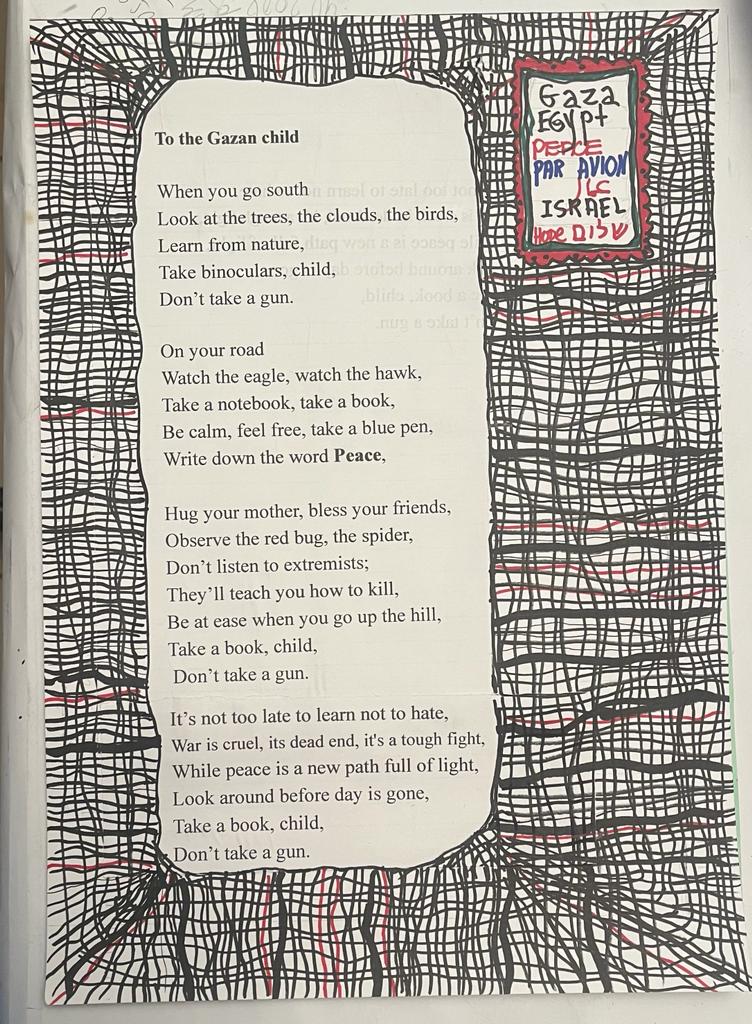 To the Gazan child
When you go south
Look at the trees, the clouds, the birds,
Learn from nature,
Take binoculars, child,
Don't take a gun.
On your road
Watch the eagle, watch the hawk,
Take a notebook, take a book,
Be calm, feel free, take a blue pen,
Write down the word Peace,
Hug your mother, bless your friends,
Observe the red bug, the spider,
Don't listen to extremists;
They'll teach you how to kill,
Be at ease when you go up the hill,
Take a book, child,
Don't take a gun.
It's not too late to learn not to hate,
War is cruel, its dead end, it's a tough fight,
While peace is a new path full of light,
Look around before day is gone,
Take a book, child,
Don't take a gun.
Gaza
EGYPT
PEACE
PAR AVION
ISRAEL
HOPE שלום